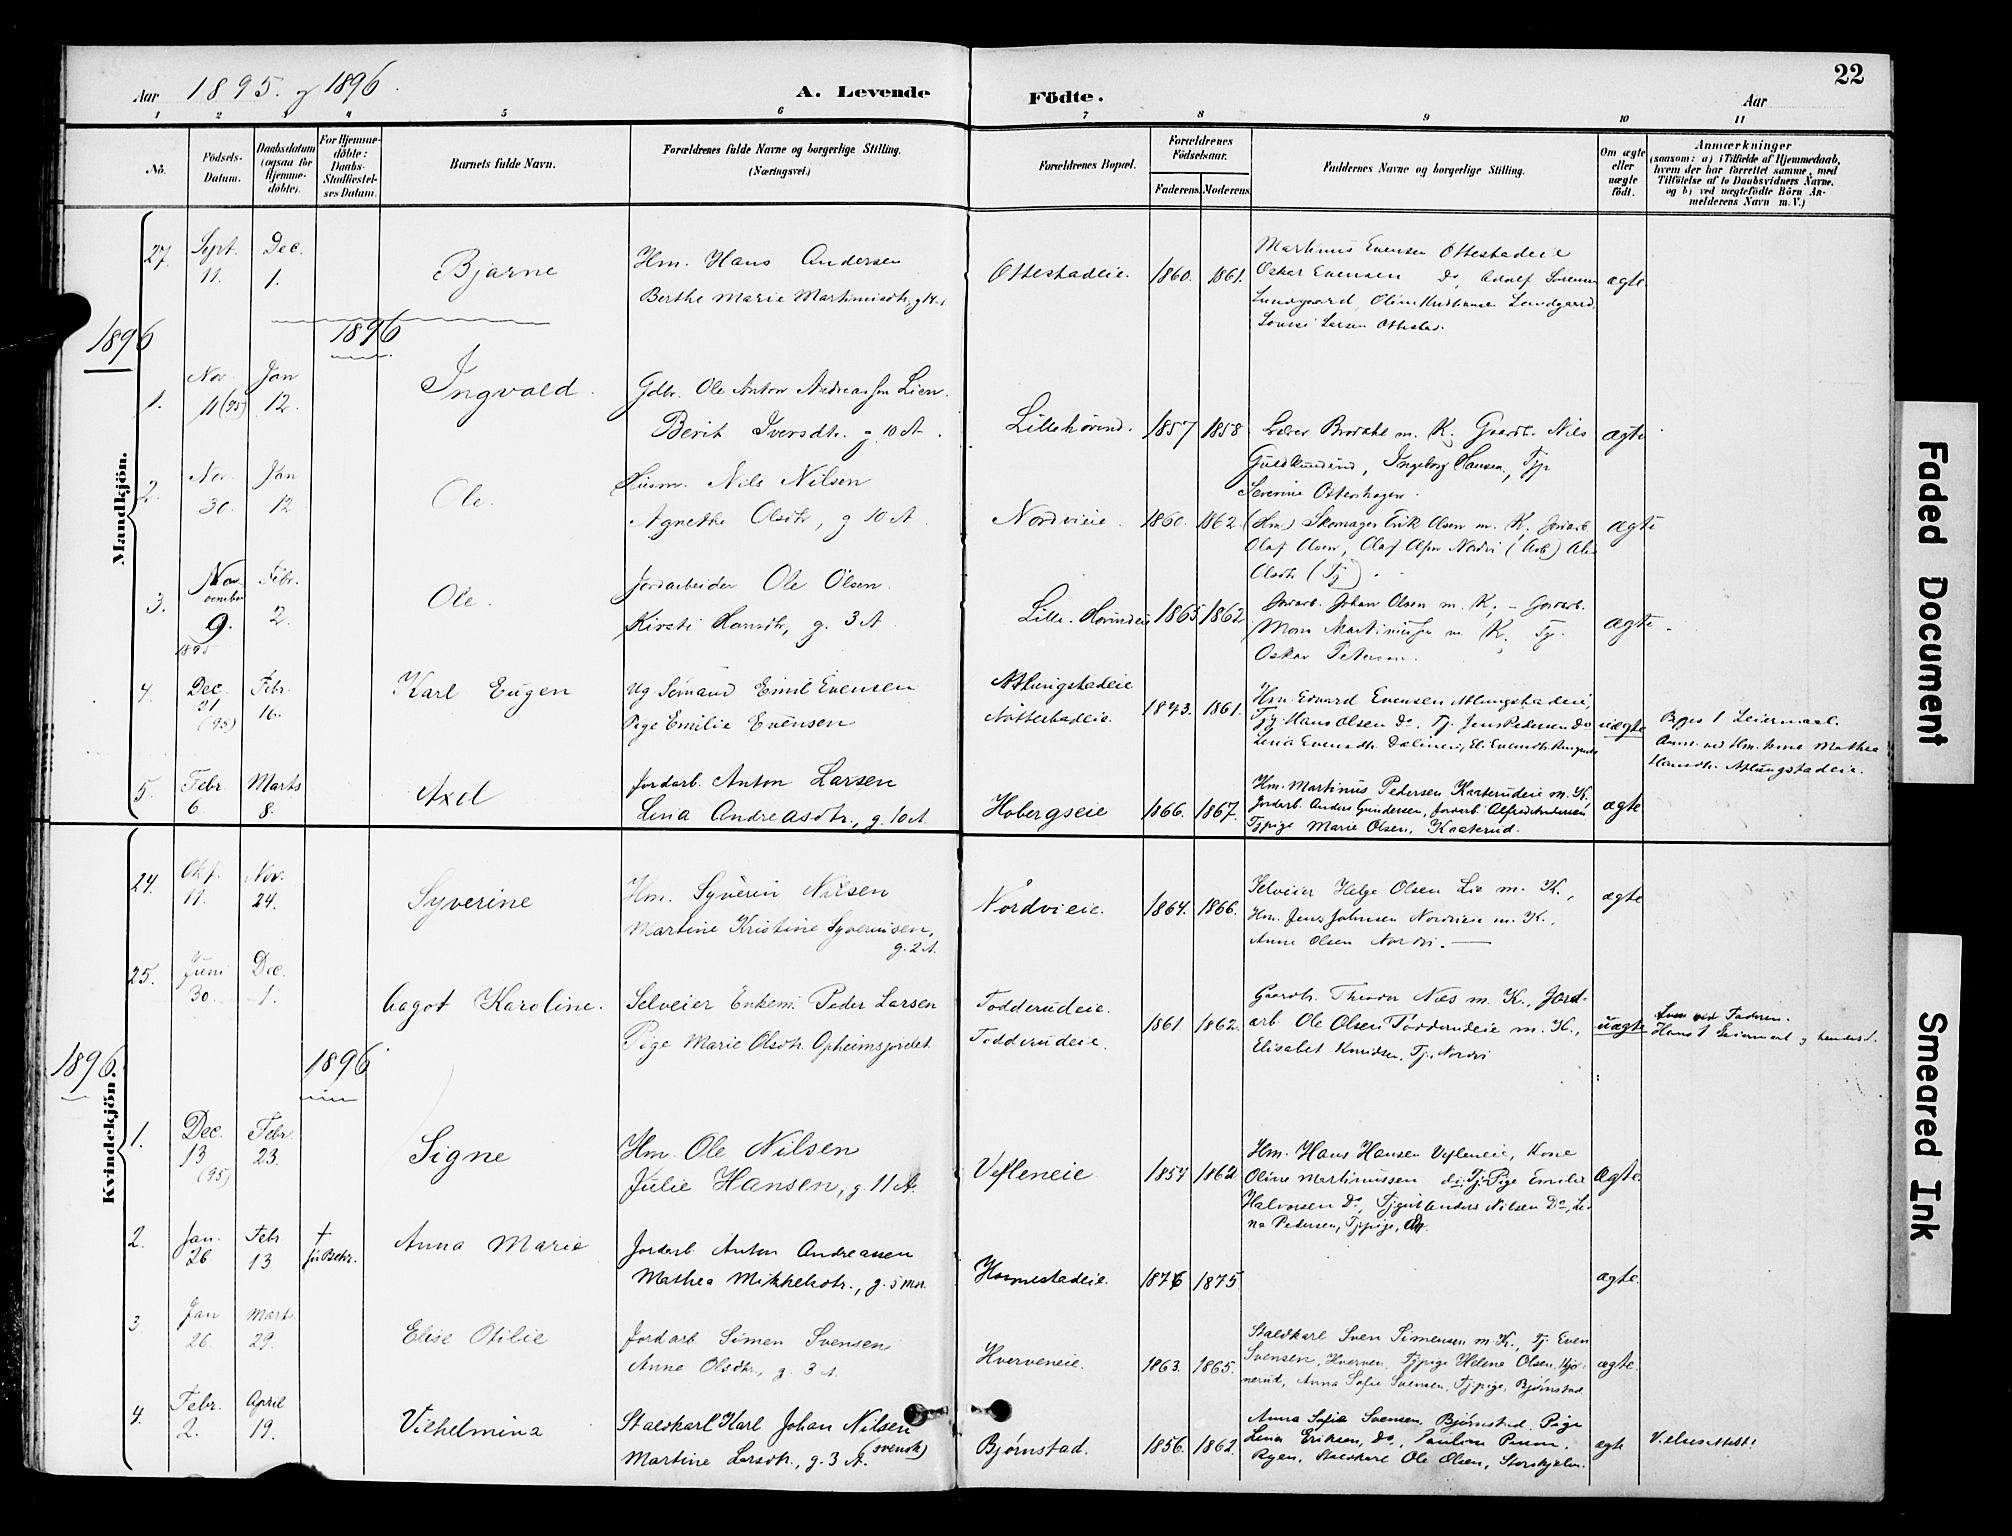 22
Aar 1895. og 1896.
A. Levende Födte.
Aar
1 2 3 4 5 6 7 8 9 10 11
No.
Födsels-Datum.
Daabsdatum (ogsaa for Hjemme-döbte).
For Hjemme-döbte: Daabs-Stadfæstel-ses Datum.
Barnets fulde Navn.
Forældrenes fulde Navne og borgerlige Stilling. (Næringsvei.)
Forældrenes Bopæl.
Forældrenes Födselsaar.
Faderens. Moderens.
Faddernes Navne og borgerlige Stilling.
Om ægte eller uægte födt.
Anmærkninger
(saasom: a) i Tilfælde af Hjemmedaab, hvem der har forrettet samme, med Tilföielse af to Daabsvidners Navne. og b) ved uægtefödte Börn An-melderens Navn m. V.)
Mandkjön.
27. Sept. 11. Dec. 1. Bjarne
Hm. Hans Andersen
Berthe Marie Martinusdtr. g 14
Ottestadeie. 1860. 1861.
Martinus Evensen Ottestadeie
Oskar Evensen Do, Adolf Sörensen
Lundgaard, Oline Kristiansen Lundgaard,
Lovise Larsen Ottestad.
ægte
1896 1896
1. Nov. 11 (95) Jan 12. Ingvald.
Gdbr. Ole Anton Andreassen Lien.
Berit Iversdtr. g. 10 A.
Lillehovind. 1857 1858
m. K. Gaardb. Nils
Ingeborg Hansen, Tjp
Severine
ægte
2. Nov. 30. Jan 12 Ole.
Husm. Nils Nilsen
Agnethe Olsdtr, g 10 A.
Nordvieie. 1860. 1862.
(Hm) Skomager Erik Olsen m. K, Jordarb.
Olaf Olsen, Olaf Olsen Nordvi (Arb)
Olsdtr (Tj).
ægte
3. November 9. 1895 Febr. 2. Ole.
Jordarbeider Ole Olsen.
Kirsti Hansdtr, g. 3 A
Lille-Hovindeie 1865 1862
Jordarb. Johan Olsen m. K. - Jordarb.
Mons Martiniussen m. K. Tj.
Oskar Petersen.
ægte.
4. Dec. 21 (95) Febr. 16. Karl Eugen
Ug. Sömand Emil Evensen
Pige Emilie Evensen
Atlungstadeie
Nötterstadeie. 1873. 1861.
Hm. Edvard Evensen Atlungstadeie,
Tj. Hans Olsen Do. Tj. Jens Pedersen Do
Lina Evensdtr.
uægte
Begges 1 Leiermaal.
Anm. ved Hm.kone Mathea
Hansdtr. Atlungstadeie.
5. Febr. 6. Marts 8. Axel
Jordarb. Anton Larsen
Lina Andreasdtr., g. 10 A.
Hobergseie 1866. 1867.
Hm. Martinus Pedersen Kaaterudeie m. K,
Jordarb. Anders Gundersen, Jordarb. Alfred Andersen
Tjpige Marie Olsen, Kaaterud.
ægte.
Kvindekjön.
24. Okt. 11. Nov. 24. Syverine
Hm. Syverin Nilsen
Martine Kristine Syverinsen,
g. 2 A.
Nordvieie. 1864. 1866.
Selveier Helge Olsen Lie m. K.,
Hm. Jens Johnsen Nordvieie m. K.,
Anne Olsen Nordvi.
ægte
25. Juni 30. Dec. 1. Aagot Karoline.
Selveier Enkem. Peder Larsen
Pige Marie Olsdtr. Opheimsjordet
Todderudeie.
Todderudeie. 1861. 1862.
Gaardb. Theodor Næs m. K., Jord-
arb. Ole Olsen Todderudeie m. K.,
Elisabet Knudsen, Tj, Nordvi
uægte
ved Faderen.
Hans 1 Leiermaal og hendes 1.
1896 1896
1. Dec. 13 (95) Febr. 23. Signe
Hm. Ole Nilsen
Julie Hansen, g. 11 A.
Vefleneie. 1854 1862
Hm. Hans Hansen Vefleneie, Kone
Oline Martinussen do, Tj.Pige Emilie
Halvorsen Do, Tjgut Anders Nilsen Do, Li-
na Pedersen, Tjpige, Do.
Ægte.
2. Jan. 26 Febr 13 † Anna Marie
Jordarb Anton Andreasen
Mathea Mikkelsdtr., g. 5 Mdr.
Hommestadeie. 1876 1875.
ægte.
3. Jan 26. Marts 29. Elise Otilie
Jordarb. Simen Svensen
Anne Olsdtr., g. 3 A
Hverveneie. 1863. 1865.
Staldkarl Sven Simensen m. K., Tj. Even
Svensen, Hverven, Tjpige Helene Olsen, Hjør-
nerud, Anna Sofie Svensen, Tjpige, Bjørnstad
ægte.
4. Febr. 2. April 19. Vilhelmina
Staldkarl Karl Johan Nilsen
(svensk)
Martine Larsdtr., g. 3 A.
Bjørnstad. 1856. 1862.
Anna Sofie Svensen, Bjørnstad. Pige
Lina Eriksen, Do.,
Staldkarl Ole Olsen,
ægte
Faded Document
Smeared Ink